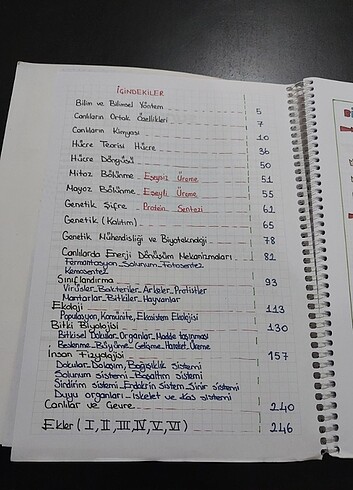 İÇİNDEKİLER
Bilim ve Bilimsel Yöntem 5
Canlıların Ortak Özellikleri 7
Canlıların Kimyası 10
Hücre Teorisi Hücre 36
Hücre Döngüsü 50
Mitoz Bölünme - Eşeysiz Üreme 51
Mayoz Bölünme - Eşeyli Üreme 55
Genetik Şifre - Protein Sentezi 61
Genetik (Kalıtım) 65
Genetik Mühendisliği ve Biyoteknoloji 78
Canlılarda Enerji Dönüşüm Mekanizmaları 82
Fermantasyon - Solunum - Fotosentez
Kemosentez
Sınıflandırma 93
Virüsler - Bakteriler - Arkeler - Protistler
Mantarlar - Bitkiler - Hayvanlar
Ekoloji 113
Popülasyon, Komünite, Ekosistem Ekolojisi
Bitki Biyolojisi 130
Bitkisel Dokular - Organlar - Madde taşınması
Beslenme - Büyüme - Gelişme - Hareket - Üreme
İnsan Fizyolojisi 157
Dokular - Dolaşım, Bağışıklık sistemi
Solunum sistemi - Boşaltım sistemi
Sindirim sistemi - Endokrin sistem - Sinir sistemi
Duyu organları - İskelet ve Kas sistemi
Canlılar ve Çevre 240
Ekler (I, II, III, IV, V, VI) 246